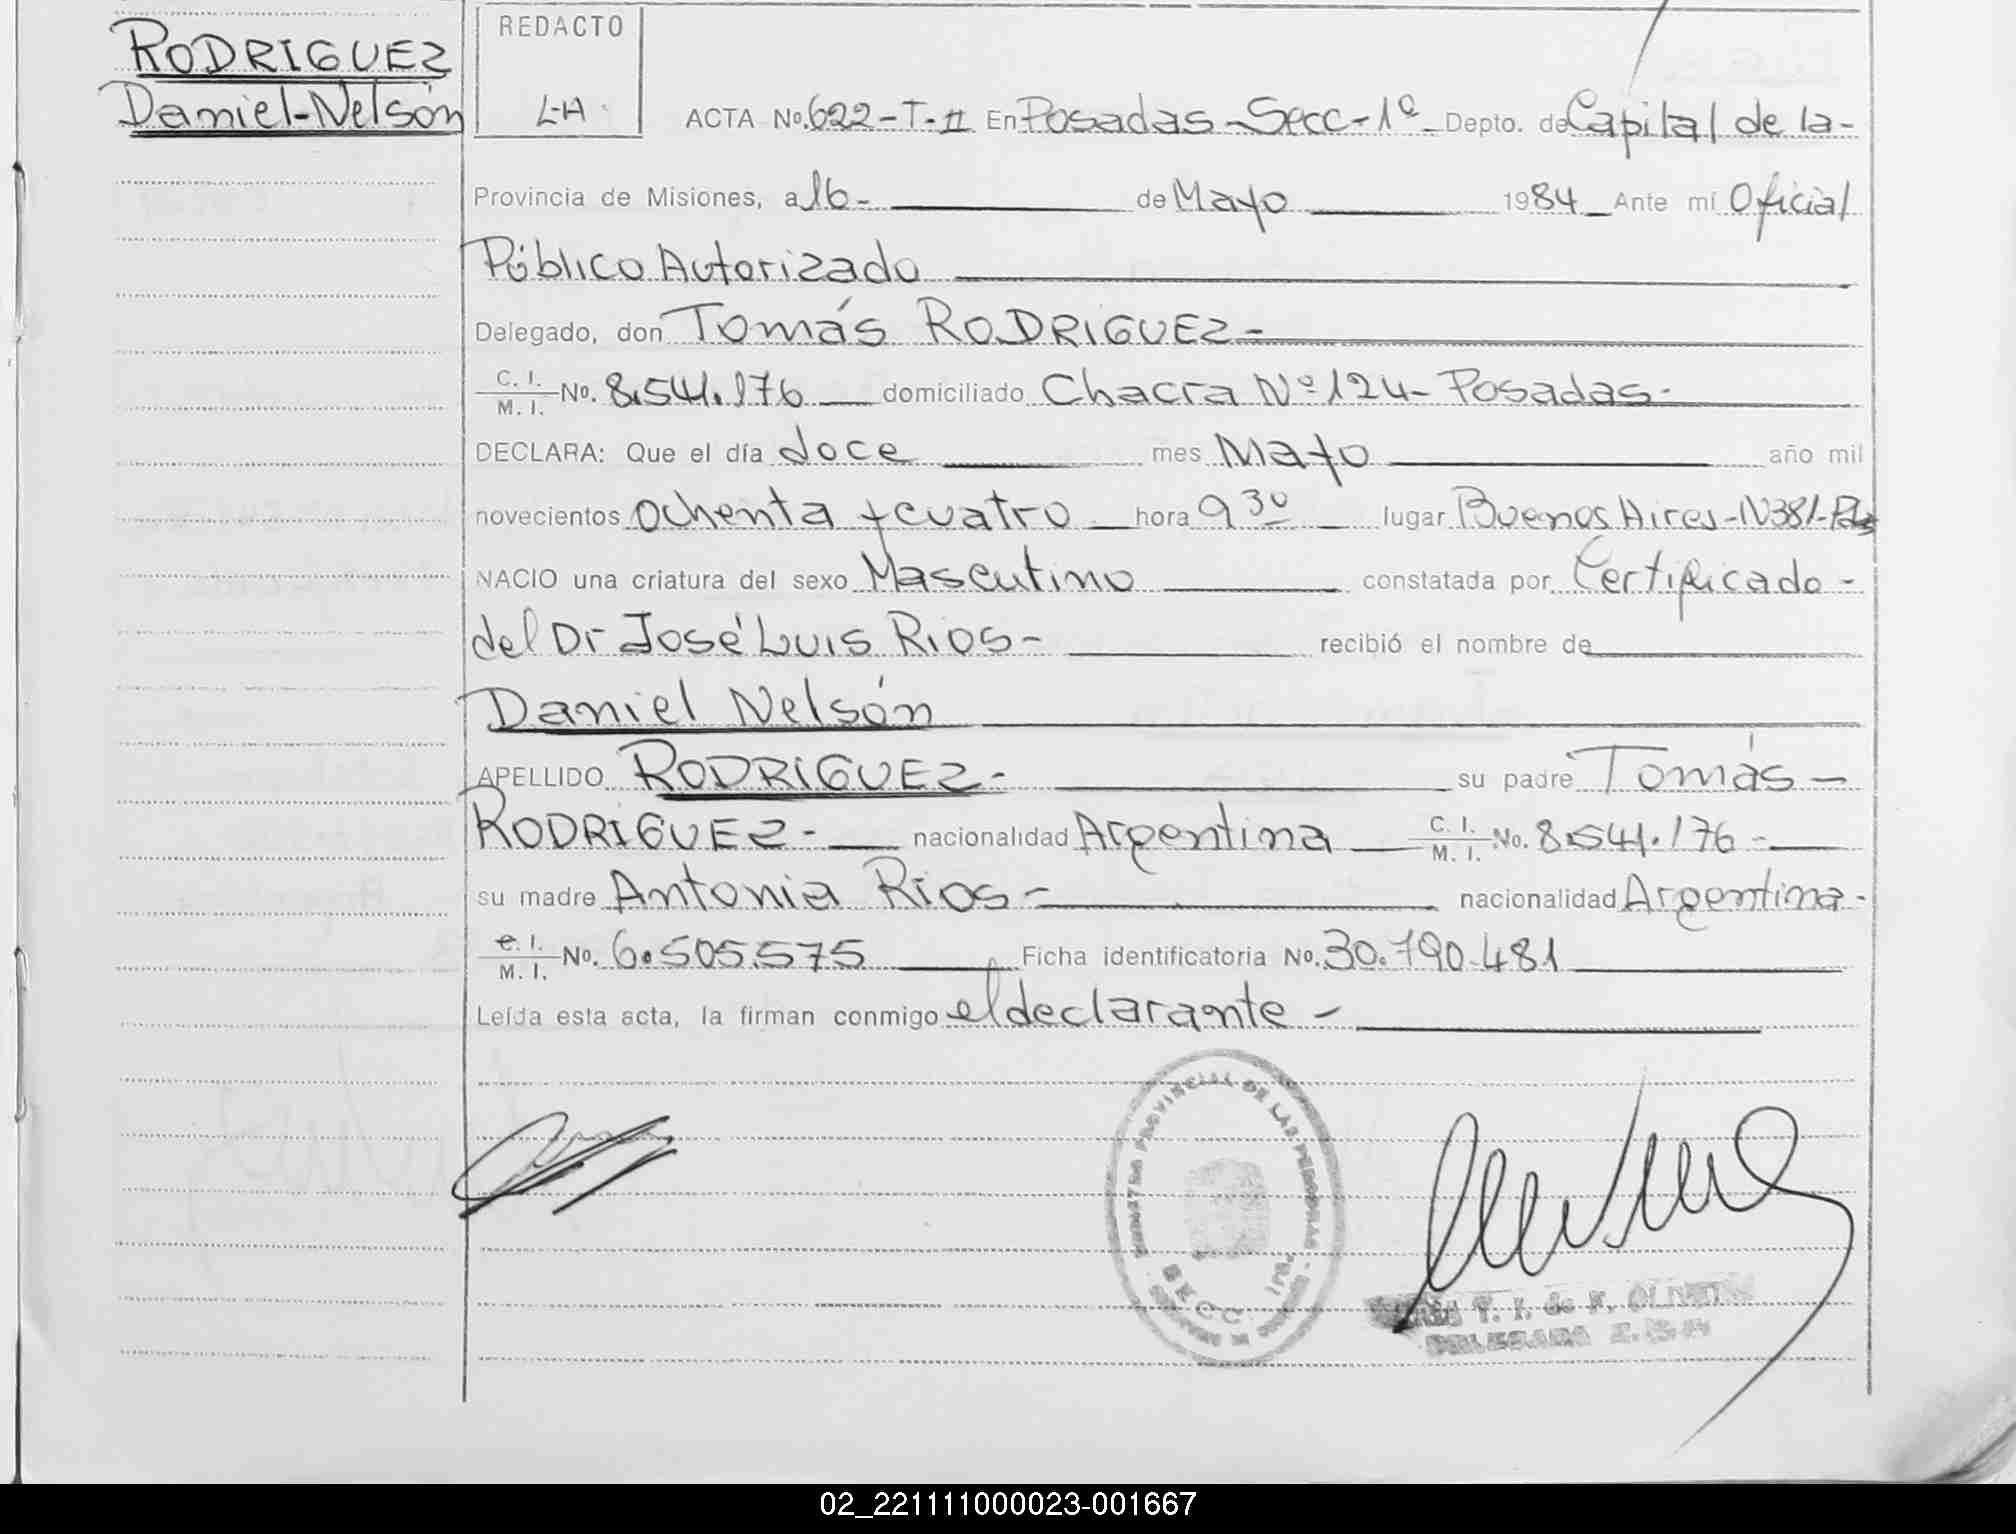 RODRIGUEZ
Daniel-Nelsón
REDACTO
L-A
ACTA No. 622-T-II En Posadas-Secc-1ª Depto. de Capital de la-
Provincia de Misiones, a 16- de Mayo 1984 Ante mí Oficial
Público Autorizado
Delegado, don Tomás RODRIGUEZ-
C. I. / M. I. No. 8.541.176 domiciliado Chacra Nº 124- Posadas-
DECLARA: Que el día doce mes Mayo año mil
novecientos ochenta y cuatro hora 9 30 lugar Buenos Aires-N381-Pdas
NACIO una criatura del sexo Masculino constatada por Certificado-
del Dr José Luis Rios- recibió el nombre de
Daniel Nelsón
APELLIDO RODRIGUEZ- su padre Tomás-
RODRIGUEZ- nacionalidad Argentina C. I. / M. I. No. 8.541.176-
su madre Antonia Rios- nacionalidad Argentina-
C. I. / M. I. No. 6.505.575 Ficha identificatoria No. 30.790.481
Leída esta acta, la firman conmigo el declarante-
REGISTRO PROVINCIAL DE LAS PERSONAS
SECC. 1ra.
T. I. de F. OLIVEIRA
DELEGADA
02_221111000023-001667